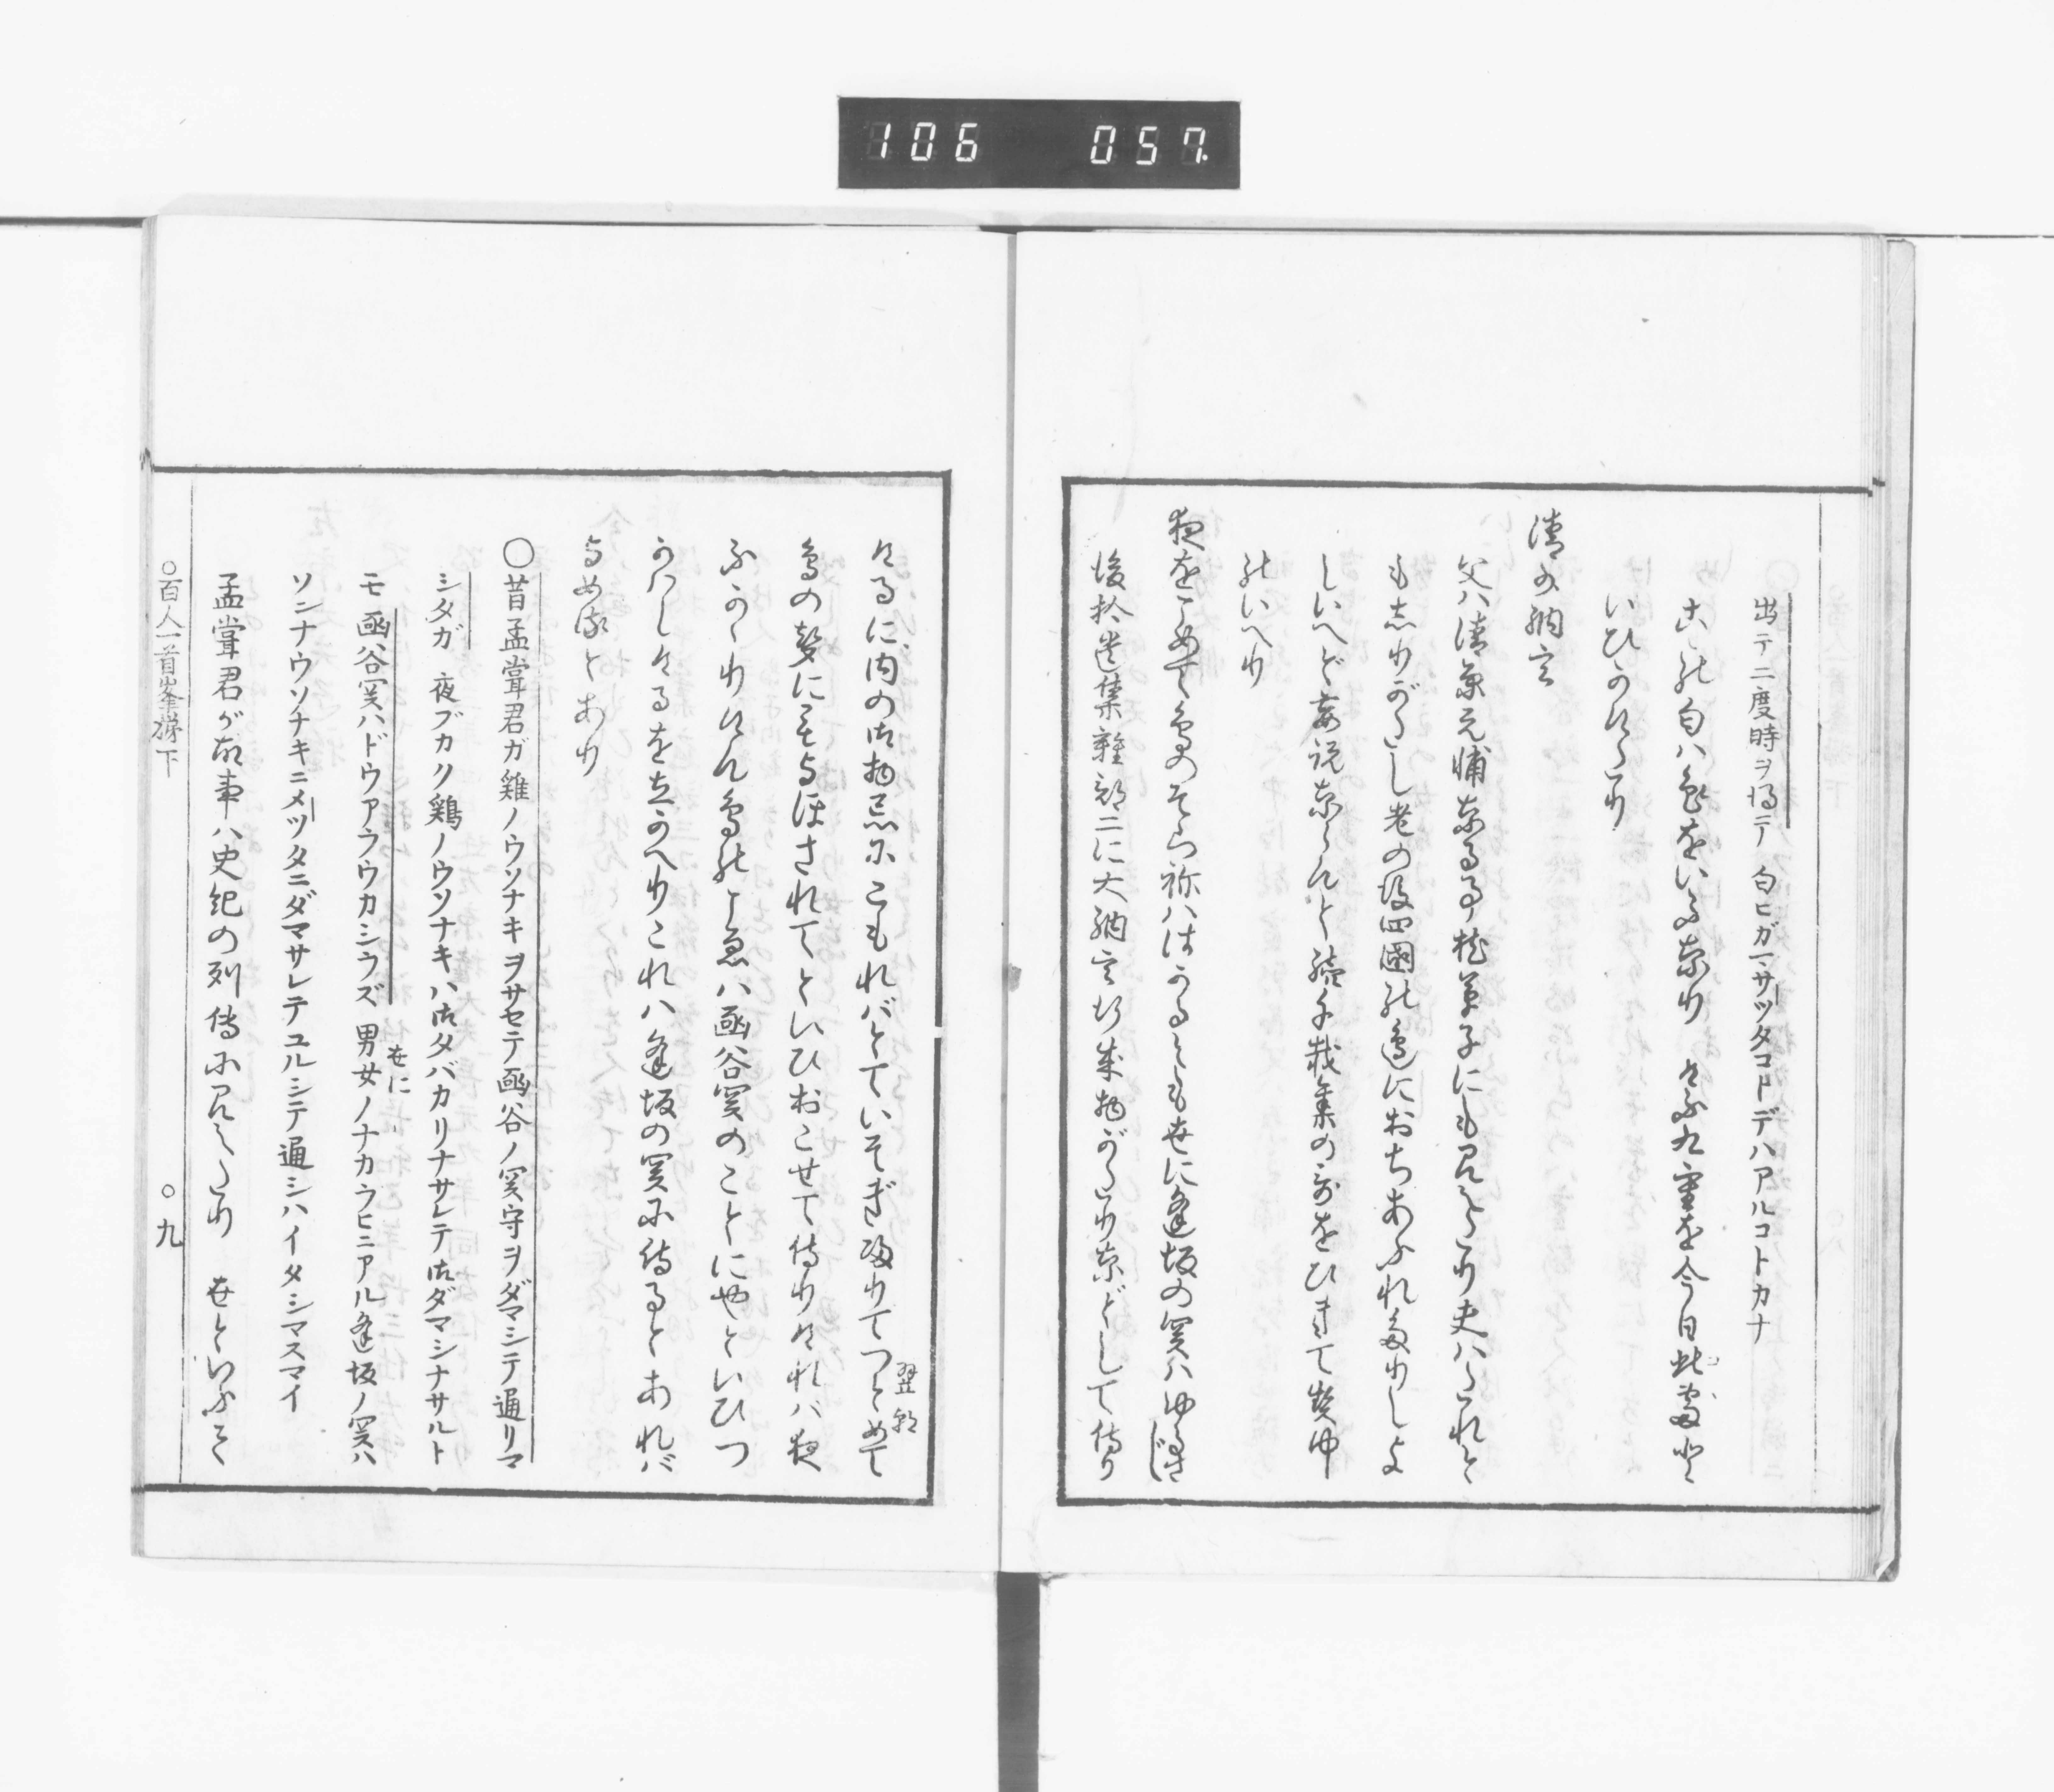 106 057.
出テ二度時ヲ得テ 匂ヒガマサツタコトデハアルコトカナ
古の匂ハ色をいふ奈り けふ九重を今日此處と
いひかけたり
清少納言
父ハ清原元輔奈る事枕草子にも見えたり夫ハたれと
も志りがたし老の後四國の邊におちあふれ多りしよ
しいへど妄説奈らんと續千載集の哥をひきて契沖
のいへり
夜をこめて鳥のそら祢ハはかるとも世に逢坂の関ハゆるさじ
後拾遺集雑部二に大納言行成物がたり奈どして侍り
けるに内の御物忌にこもれバとていそぎ帰りてつとめて
翌朝
鳥の聲にもよほされてといひおこせて侍りけれバ夜
ふかかりけん鳥のこゑハ函谷関のことにやといひつ
かハしけるを立かへりこれハ逢坂の関に侍るとあれバ
よめるとあり
○昔孟甞君ガ雞ノウソナキヲサセテ函谷ノ関守ヲダマシテ通リマ
シタガ 夜ブカク鶏ノウソナキハ御タバカリナサレテ御ダマシナサルト
モ函谷関ハドウアラウカシラズ 男女ノナカラヒニアル逢坂ノ関ハ
世に
ソンナウソナキニメツタニダマサレテユルシテ通シハイタシマスマイ
孟甞君が故事ハ史紀の列傳に見えたり 世といふ
○百人一首峯梯下
○九